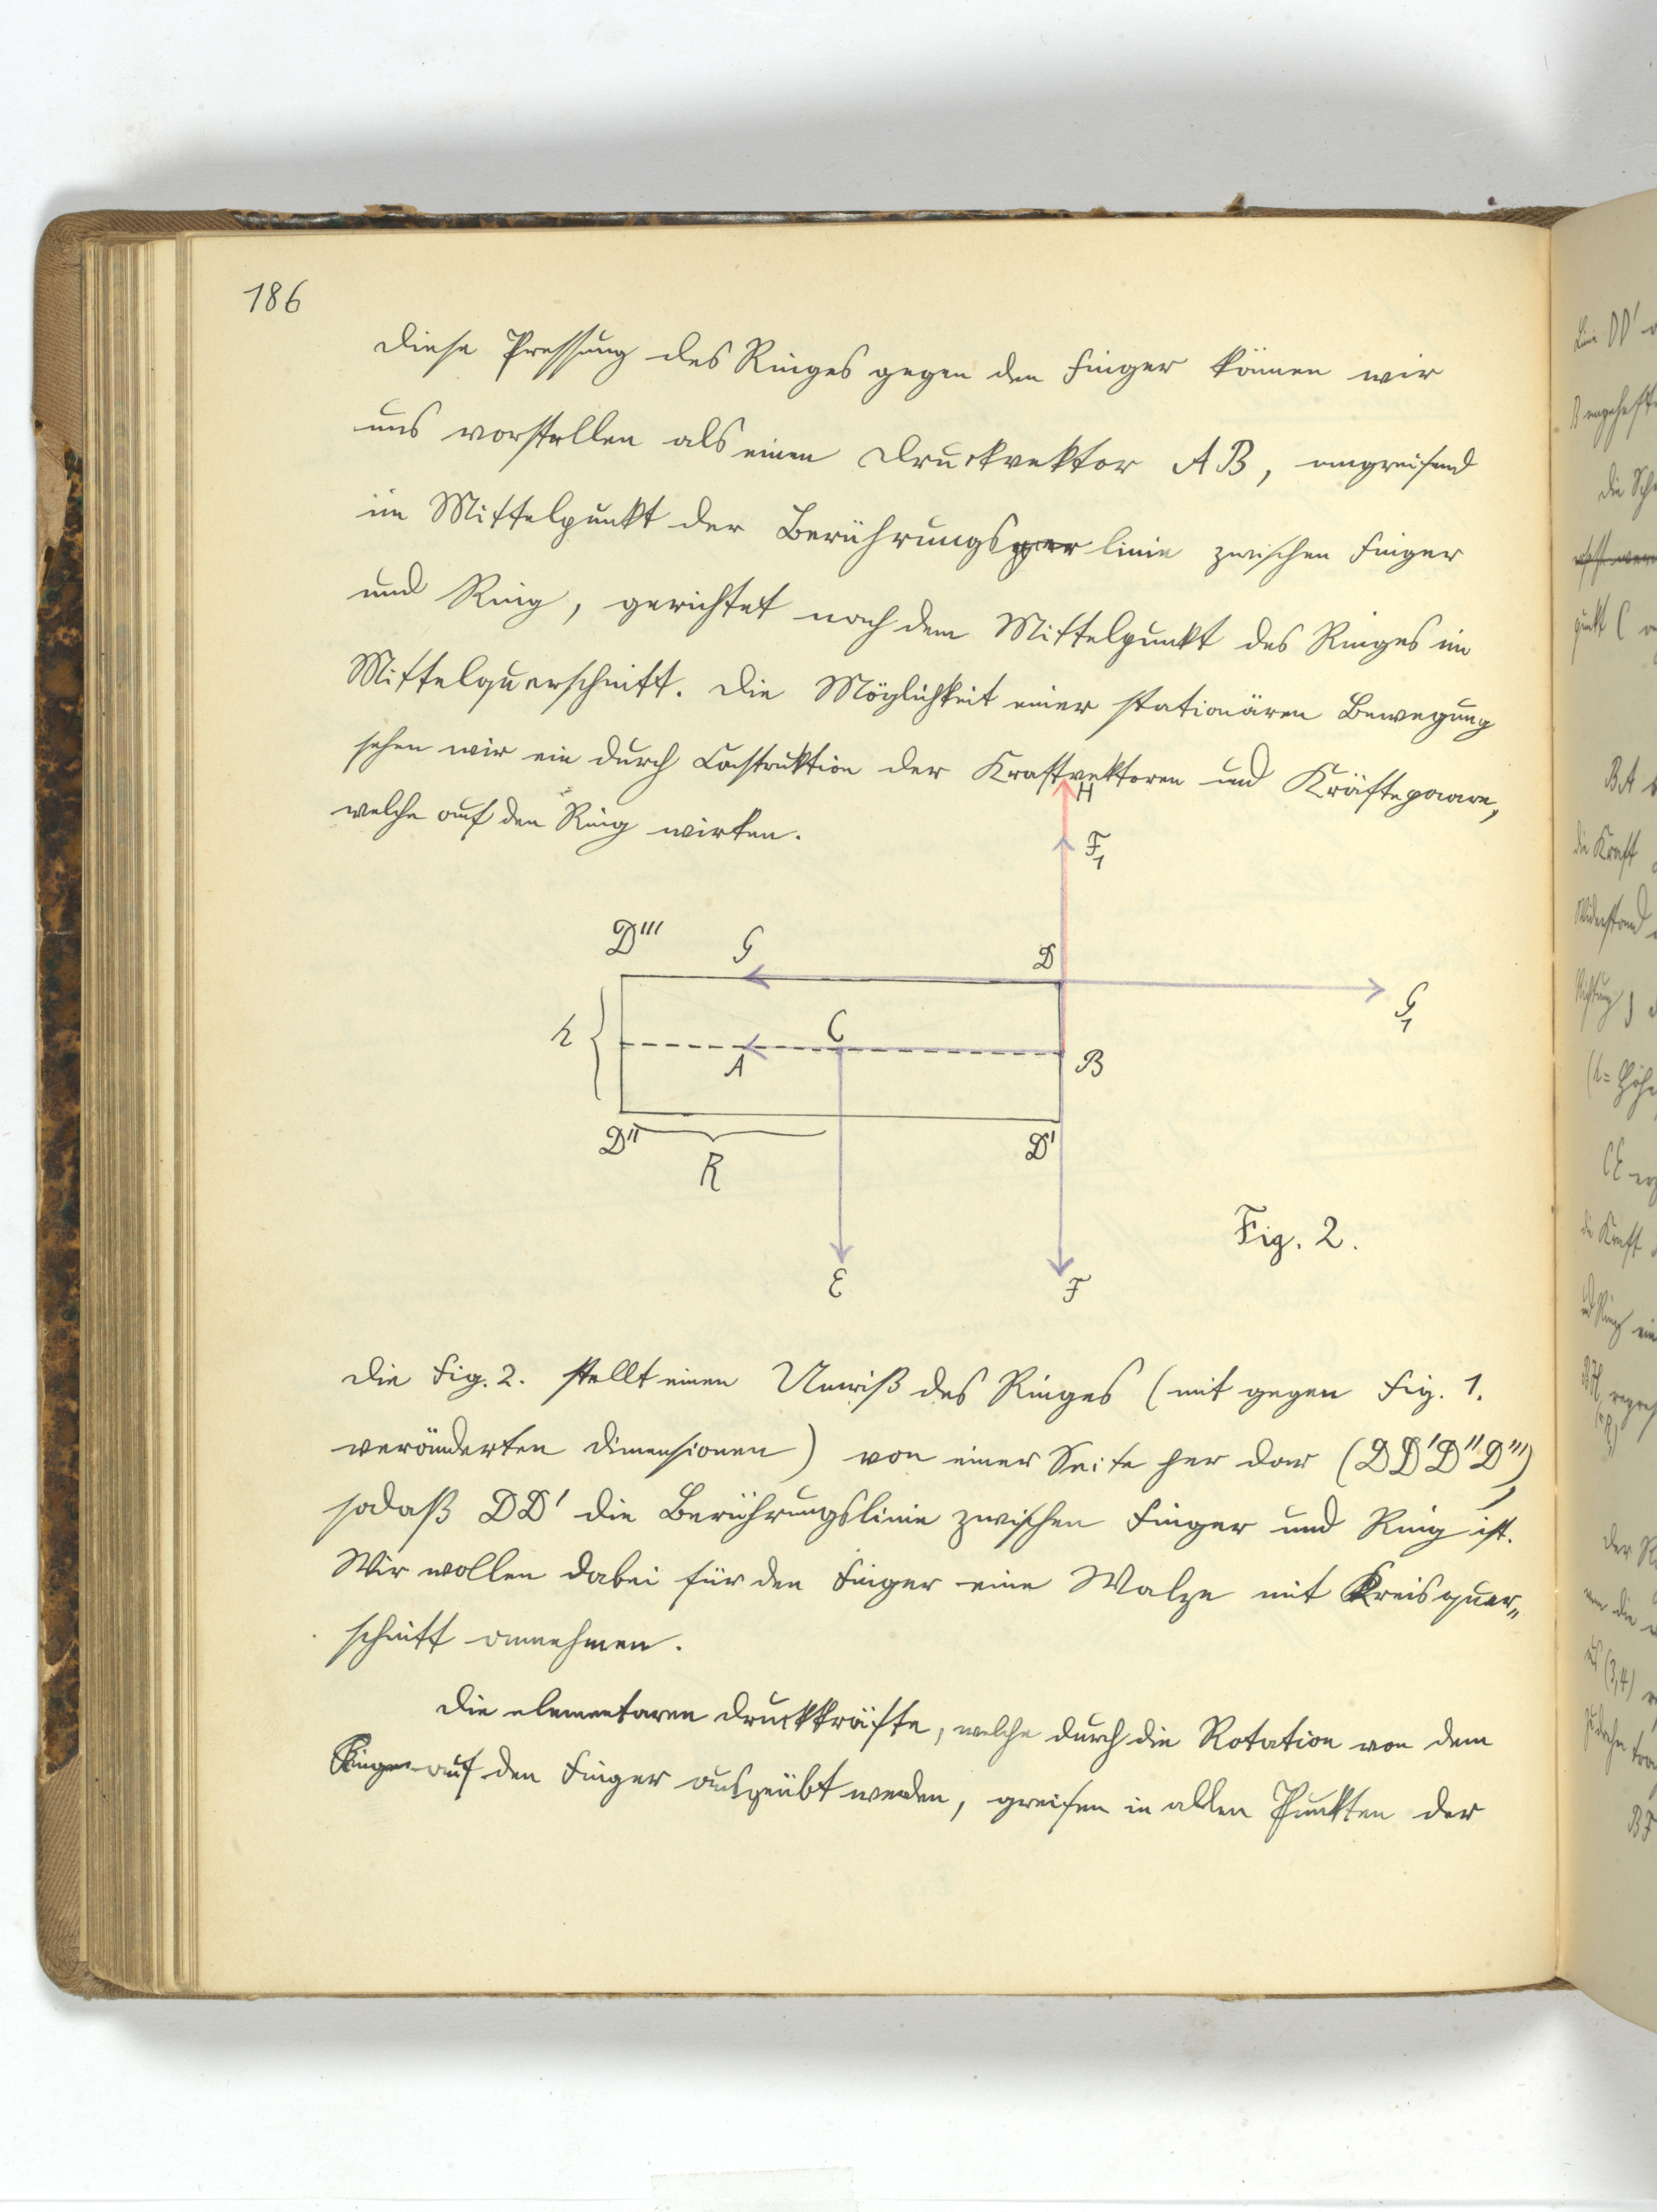 186
Diese Pressung des Ringes gegen den Finger können wir
uns vorstellen als einen Druckvektor AB, angreifend
im Mittelpunkt der Berührungsger linie zwischen Finger
und Ring, gerichtet nach dem Mittelpunkt des Ringes im
Mittelquerschnitt. Die Möglichkeit einer stationären Bewegung
sehen wir ein durch Constuktion der Kraftvektoren und Kräftepaare,
welche auf den Ring wirken.
H
F₁
D''' G D
G₁
h C
A B
D'' D'
R
Fig. 2.
E F
Die Fig. 2. stellt einen Umriß des Ringes (mit gegen Fig. 1.
veränderten Dimensionen) von einer Seite her dar (DD'D''D'''),
sodaß DD' die Berührungslinie zwischen Finger und Ring ist.
Wir wollen dabei für den Finger eine Walze mit Kreisquer„
schnitt annehmen.
Die elementaren Druckkräfte, welche durch die Rotation von dem
Ringe auf den Finger ausgeübt werden, greifen in allen Punkten der
Linie DD'
B angehefte
die Sch
punkt C
BA
die Kraft
Widerstand
Richtung
(h = Höhe
CE
die Kraft
und Ring
BH
der R
(3,4)
BF